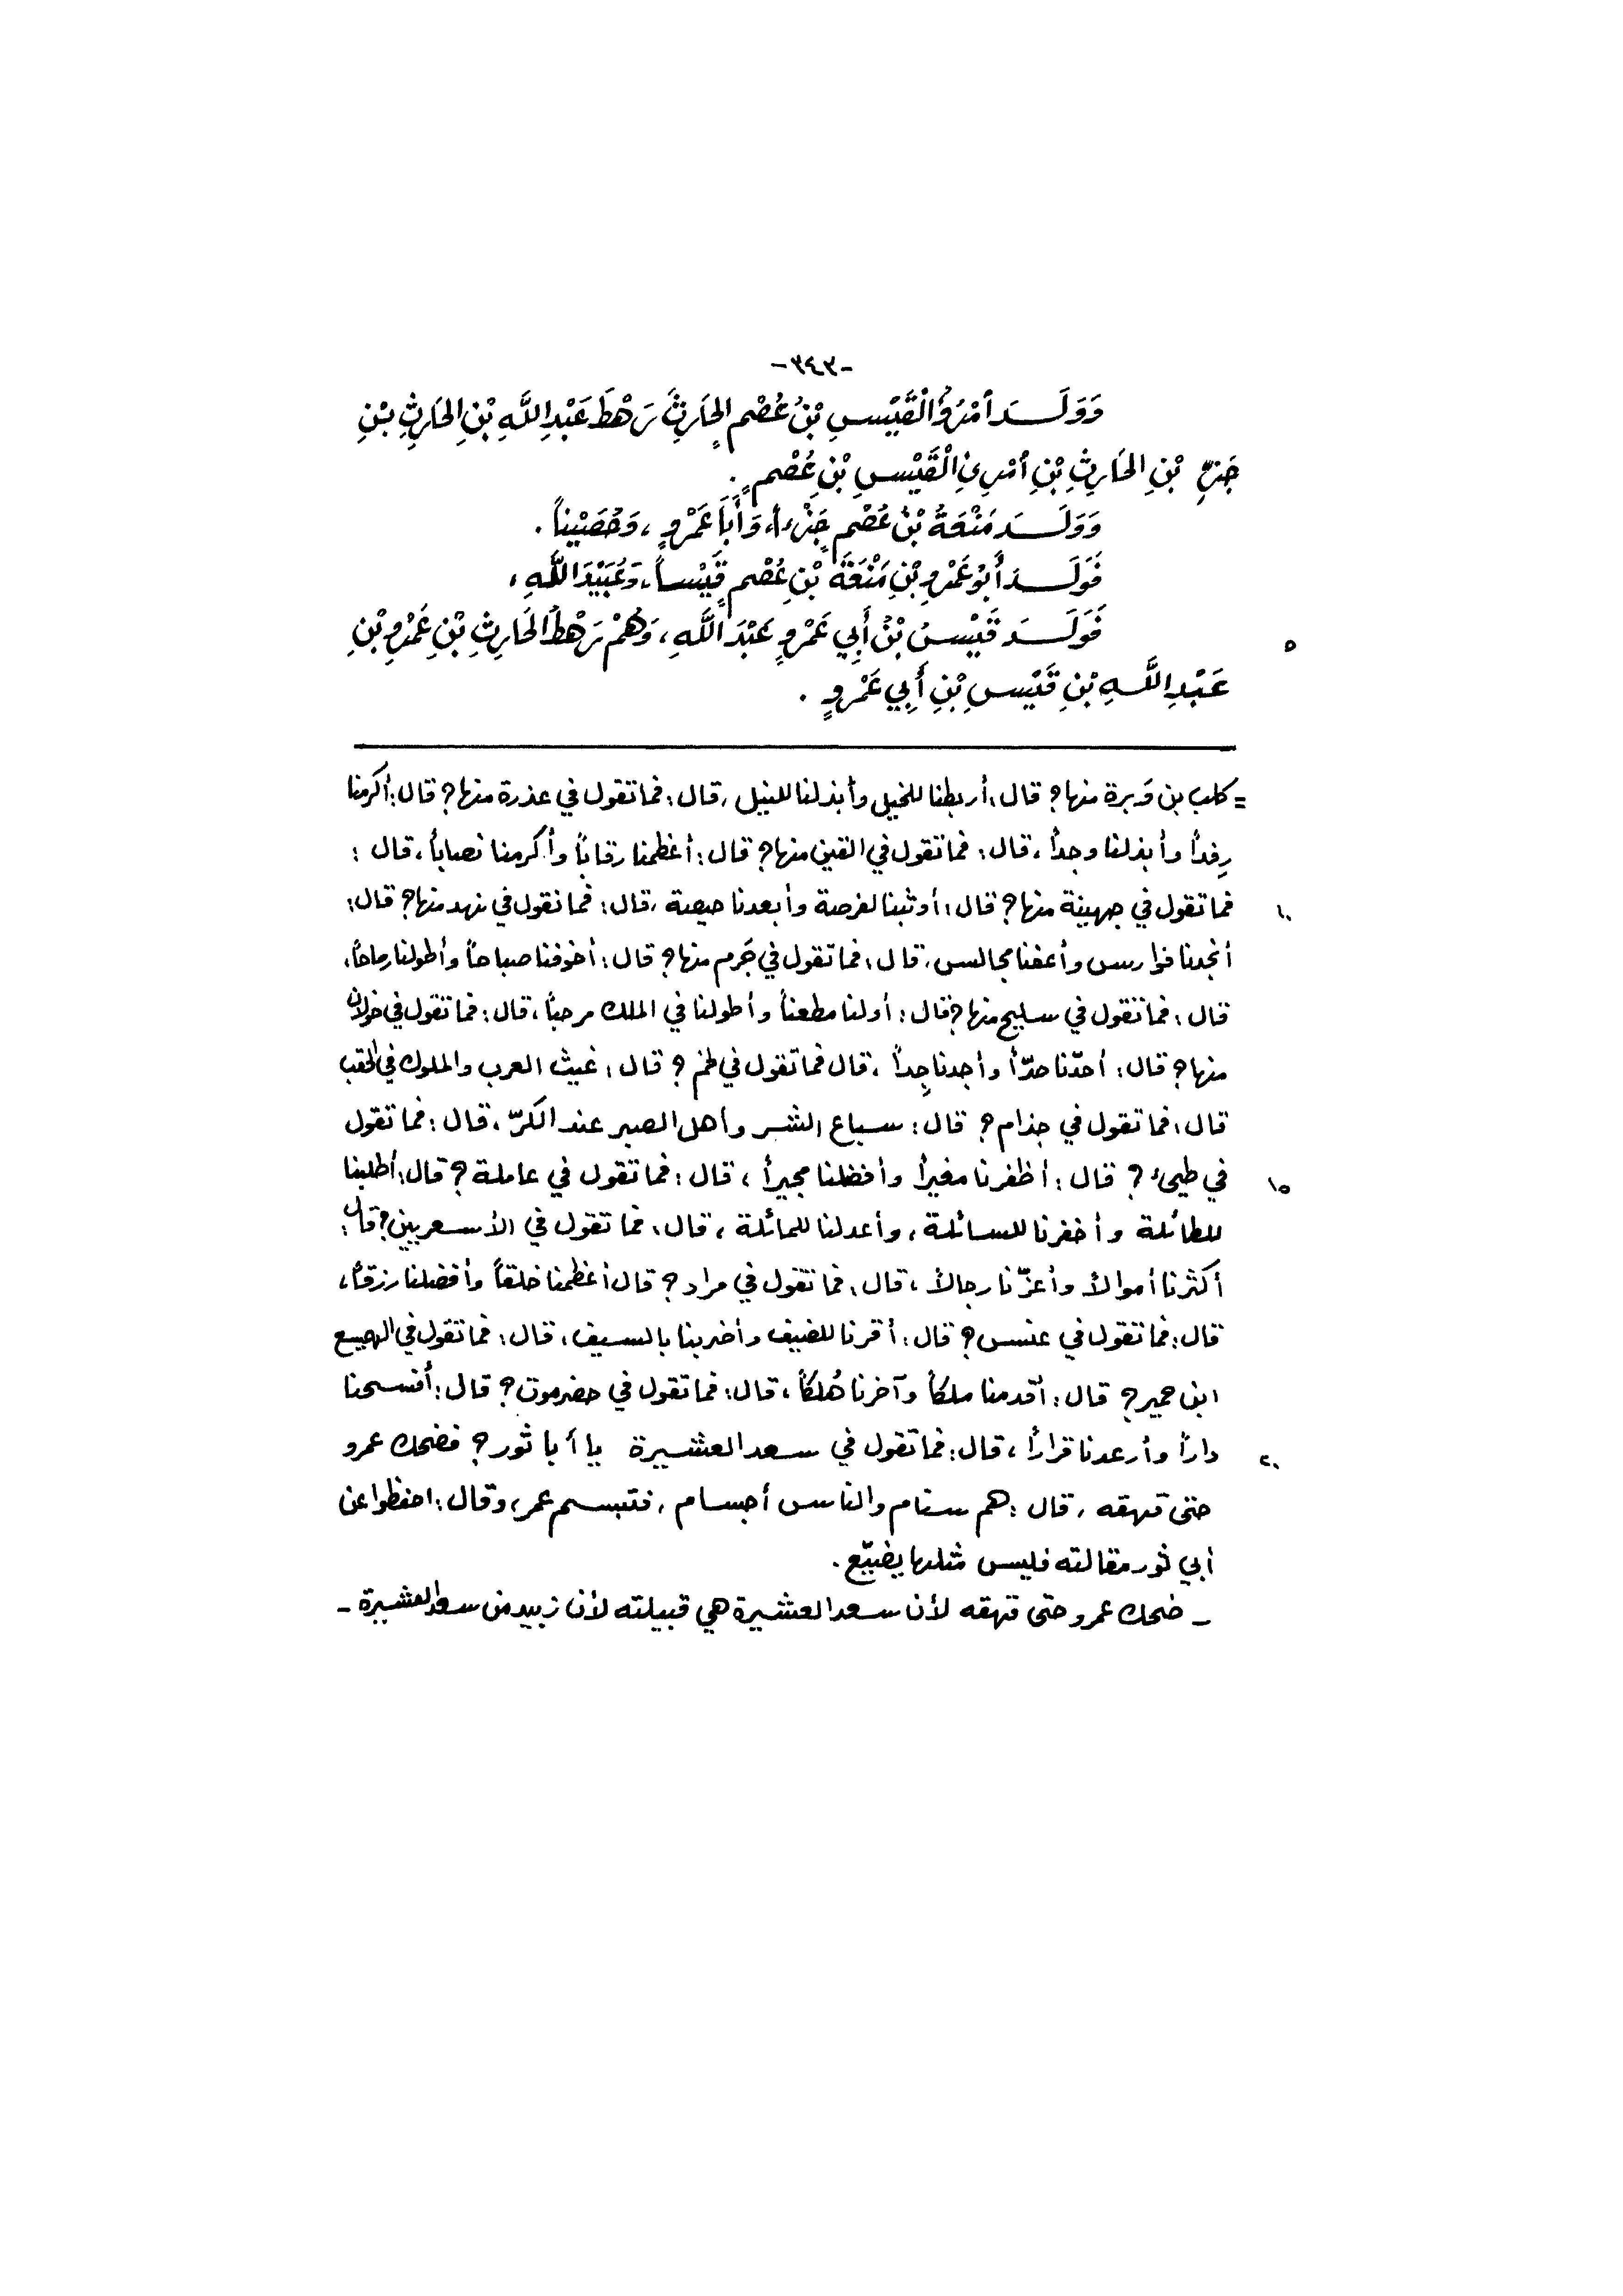 -٣٤٣-
وَوَلَـــدَ امْرُؤُ الْقَيْسِ بْنُ عُصْمٍ الحَارِثَ رَهْطَ عَبْدِ اللَّهِ بْنِ الحَارِثِ بْنِ
جَزْءِ بْنِ الحَارِثِ بْنِ امْرِئِ الْقَيْسِ بْنِ عُصْمٍ .
وَوَلَـــدَ مَنْعَةُ بْنُ عُصْمٍ جَزْءاً، وَأَبَا عَمْرٍو ، وَحُصَيْناً .
فَوَلَـــدَ أَبُو عَمْرِو بْنِ مَنْعَةَ بْنِ عُصْمٍ قَيْساً، وَعُبَيْدَ اللَّهِ ،
فَوَلَـــدَ قَيْسُ بْنُ أَبِي عَمْرٍو عَبْدَ اللَّهِ ، وَهُمْ رَهْطُ الحَارِثِ بْنِ عَمْرِو بْنِ
٥
عَبْدِ اللَّهِ بْنِ قَيْسِ بْنِ أَبِي عَمْرٍو .
= كلب بن وَبرة منها؟ قال: أربطنا للخيل وأبذلنا للنيل ، قال: فما تقول في عذرة منها؟ قال: أكرمنا
رِفداً وأبذلنا وجداً ، قال: فما تقول في القين منها؟ قال: أعظمنا رقاباً وأكرمنا نصاباً ، قال :
فما تقول في جهينة منها؟ قال: أوثبنا لفرصة وأبعدنا حيصة ، قال: فما تقول في نهد منها؟ قال:
١٠
أنجدنا فوارس وأعفنا مجالس ، قال: فما تقول في جَرم منها؟ قال: أخوفنا صباحاً وأطولنا رماحاً ،
قال: فما تقول في سليح منها؟ قال: أولنا مطعناً وأطولنا في الملك مرحباً ، قال: فما تقول في خولان
منها؟ قال: أحدّنا حدّاً وأجدنا جِداً ، قال فما تقول في لخم ؟ قال: غيث العرب والملوك في الحقب
قال: فما تقول في جذام؟ قال: سباع الشر وأهل الصبر عند الكرّ ، قال: فما تقول
في طيئ ؟ قال: أظفرنا مغيراً وأفضلنا مجيراً ، قال: فما تقول في عاملة ؟ قال: أطلبنا
١٥
للطائلة وأخفرنا للسائلة ، وأعدلنا للمائلة ، قال: فما تقول في الأسعريين؟ قال:
أكثرنا أموالاً وأعزّنا رجالاً ، قال: فما تقول في مراد ؟ قال أعظمنا خلقاً وأفضلنا رزقاً ،
قال: فما تقول في عنس؟ قال: أقرنا للضيف وأضربنا بالسيف ، قال: فما تقول في الهميسع
ابن حمير؟ قال: أقدمنا ملكاً وآخرنا هُلكاً ، قال: فما تقول في حضرموت؟ قال: أفسحنا
داراً وأرعدنا قراراً ، قال: فما تقول في سعد العشيرة يا أبا ثور؟ فضحك عمرو
٢٠
حتى قهقه ، قال: هم سنام والناس أجسام ، فتبسم عمر، وقال: احفظوا عن
أبي ثور مقالته فليس مثلها يضيّع .
- ضحك عمرو حتى قهقه لأن سعد العشيرة هي قبيلته لأن زبيد من سعد العشيرة -